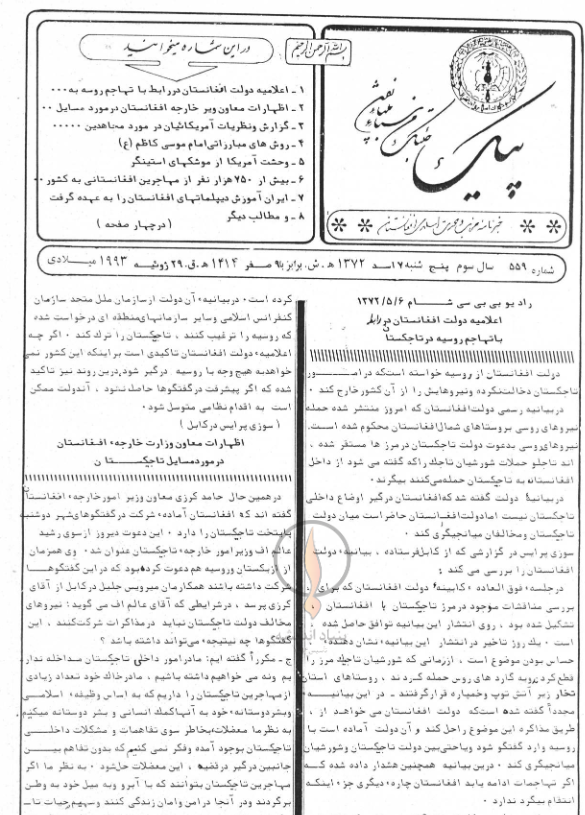 بسم الله الرحمن الرحیم
در این شماره میخوانید
۱ ـ اعلامیه دولت افغانستان دررابط با تهاجم روسیه به۰۰۰
۲ ـ اظهارات معاون ویر خارجه افغانستان درمورد مسایل ۰۰
۳ ـ گزارش ونظریات آمریکائیان در مورد مجاهدین ۰۰۰۰۰
۴ ـ روش های مبارزاتی امام موسی کاظم (ع)
۵ ـ وحشت آمریکا از موشکهای استینگر
۶ ـ بیش از ۷۵۰ هزار نفر از مهاجرین افغانستانی به کشور ۰۰
۷ ـ ایران آموزش دیپلماتهای افغانستان را به عهده گرفت
۸ ـ و مطالب دیگر
(درچهار صفحه )
پیک
شماره ۵۵۹ سال سوم پنج شنبه ۷ اسد ۱۳۷۲ ه‍ ـ ش، برابر با ۹ صفر ۱۴۱۴ ه‍ ـ ق، ۲۹ ژوئیه ۱۹۹۳ میلادی
رادیو بی بی سی شام ۱۳۷۲/۵/۶
اعلامیه دولت افغانستان در رابطه
با تهاجم روسیه در تاجکستان
دولت افغانستان از روسیه خواسته است که در امور
تاجکستان دخالت نکرده ونیروهایش را از آن کشور خارج کند ۰
دربیانیه رسمی دولت افغانستان که امروز منتشر شده حمله
نیروهای روسی بروستاهای شمال افغانستان محکوم شده است.
نیروهای روسی بدعوت دولت تاجکستان درمرز ها مستقر شده ،
اند تاجلو حملات شورشیان تاجک راکه گفته می شود از داخل
افغانستان به تاجکستان حمله می کنند بیگرند۰
دربیانیهٔ دولت گفته شد که افغانستان درگیر اوضاع داخلی
تاجکستان نیست اما دولت افغانستان حاضر است میان دولت
تاجکستان ومخالفان میانجیگری کند ۰
سوزی پرایس در گزارشی که از کابل فرستاده ، بیانیه دولت
افغانستان را بررسی می کند :
درجلسه فوق العاده کابینه دولت افغانستان که برای
بررسی مناقشات موجود درمرز تاجکستان با افغانستان ،
تشکیل شده بود ، روی انتشار این بیانیه توافق حاصل شده
است ۰ یک روز تاخیر درانتشار این بیانیه نشان دهنده
حساس بودن موضوع است ، اززمانی که شورشیان تاجک مرز را
قطع کرده و به گارد های روس حمله کردند ، روستاهای استان
تخار زیر آتش توپ وخمپاره قرار گرفتند ۰ در این بیانیه
مجدداً گفته شده است که دولت افغانستان می خواهد از ،
طریق مذاکره این موضوع راحل کند و آن دولت آماده است با
روسیه وارد گفتگو شود ویاحتی بین دولت تاجکستان وشورشیان
میانجیگری کند ۰ درین بیانیه همچنین هشدار داده شده که
اگر تهاجمات ادامه یابد افغانستان چاره دیگری جز اینکه
انتقام بیگرد ندارد ۰
کرده است ۰ دربیانیه آن دولت ازسازمان ملل متحد سازمان
کنفرانس اسلامی وسایر سازمانهای منطقه ای درخواست شده
که روسیه را ترغیب کنند ، تاجکستان را ترک کند ۰ اگر چه
اعلامیه دولت افغانستان تاکیدی است براینکه این کشور نمی
خواهد به هیچ وجه با روسیه درگیر شود، درین روند نیز تاکید
شده که اگر پیشرفت درگفتگوها حاصل نشود ، آندولت ممکن
است به اقدام نظامی متوسل شود۰
( سوزی پرایس درکابل )
اظهارات معاون وزارت خارجه افغانستان
درمورد مسایل تاجکستان
درهمین حال حامد کرزی معاون وزیر امور خارجه افغانستان
گفته اند که افغانستان آماده شرکت در گفتگوهای شهر دوشنبه
پایتخت تاجکستان را دارد ۰ این دعوت دیروز ازسوی رشید
عالم اف وزیر امور خارجه تاجکستان عنوان شد ۰ وی همزمان
از ازبکستان وروسیه هم دعوت کرده بود که در این گفتگوها
شرکت داشته باشند همکارمان میرویس جلیل درکابل از آقای
کرزی پرسد ، درشرایطی که آقای عالم اف می گوید: نیروهای
مخالف دولت تاجکستان نباید درمذاکرات شرکت کنند ، این
گفتگوها چه نتیجه می تواند داشته باشد ؟
ج ـ مکررآ گفته ایم: مادر امور داخلی تاجکستان مداخله نداریم
ونه می خواهیم داشته باشیم ، مادرخاک خود تعداد زیادی
ازمهاجرین تاجکستان را داریم که به اساس وظیفه اسلامی
وبشردوستانه خود به آنها کمک انسانی و بشر دوستانه میکنیم.
به نظر ما معضلات بخاطر سوی تفاهمات و مشکلات داخلی
تاجکستان بوجود آمده وفکر نمی کنیم که بدون تفاهم بین
جانبین درگیر درقضیه ، این معضلات حل شود ۰ به نظر ما اگر
مهاجرین تاجکستان بتوانند که با آبرو وبه میل خود به وطن
برگردند ودر آنجا درامن وامان زندگی کنند وسهیم حیات تاـ